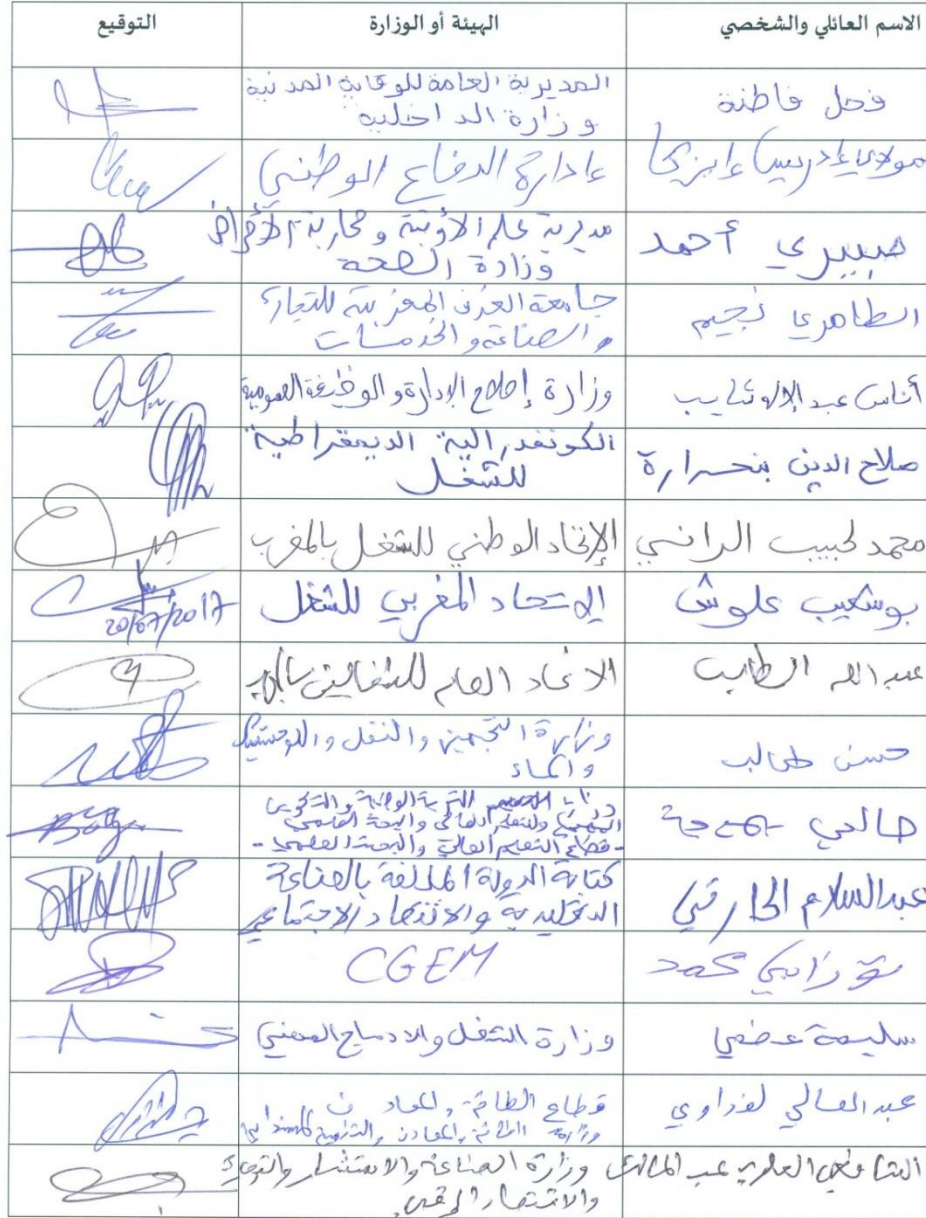 الاسم العائلي والشخصي الهيئة أو الوزارة التوقيع
فحل فاطنة المديرية العامة للوقاية المدنية
وزارة الداخلية
مولاي إدريس إدارة الدفاع الوطني
صبيري أحمد مديرية علم الأوبئة ومحاربة الأمراض
وزارة الصحة
الطاهري نجيم جامعة الغرف المغربية للتجارة
والصناعة والخدمات
أناس عبد الإله وزارة إصلاح الإدارة والوظيفة العمومية
صلاح الدين بنحسرارة الكونفدرالية الديمقراطية
للشغل
محمد لحبيب الإتحاد الوطني للشغل بالمغرب
بوشعيب علوش الإتحاد المغربي للشغل
20/07/2017
عبد الله الطالب الاتحاد العام للشغالين
حسن طالب وزارة التجهيز والنقل واللوجستيك
والماء
صالحي بهيجة التربية الوطنية والتكوين
المهني والتعليم العالي والبحث العلمي
- قطاع التعليم العالي والبحث العلمي -
عبد السلام كتابة الدولة المكلفة بالصناعة
التقليدية والاقتصاد الاجتماعي
محمد CGEM
سليمة عضمي وزارة الشغل والادماج المهني
عبد العالي لفداوي قطاع الطاقة والمعادن
وزارة الطاقة والمعادن والتنمية المستدامة
وزارة الصناعة والاستثمار والتجارة
والاقتصاد الرقمي